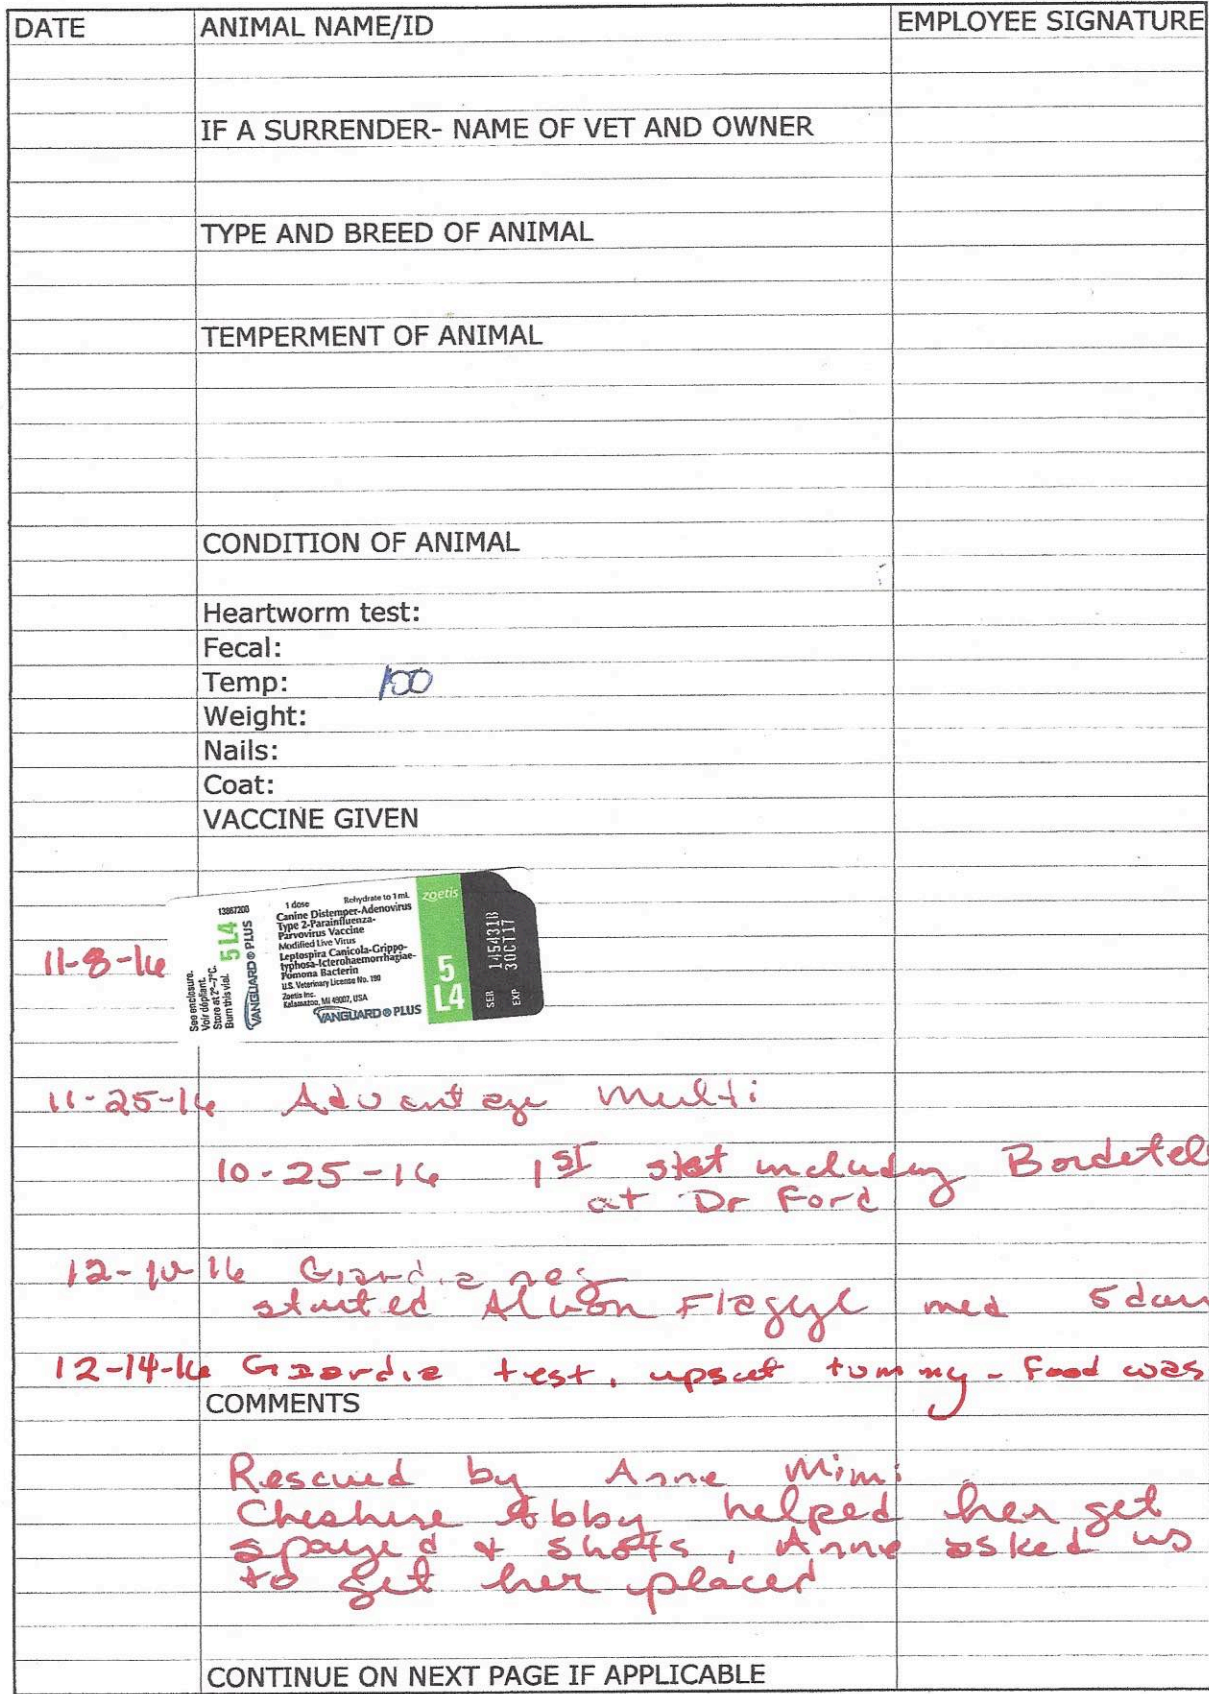 DATE ANIMAL NAME/ID EMPLOYEE SIGNATURE
IF A SURRENDER- NAME OF VET AND OWNER
TYPE AND BREED OF ANIMAL
TEMPERMENT OF ANIMAL
CONDITION OF ANIMAL
Heartworm test:
Fecal:
Temp: 100
Weight:
Nails:
Coat:
VACCINE GIVEN
11-8-16
See enclosure.
Voir dépliant.
Store at 2°-7°C.
Burn this vial.
VANGUARD® PLUS
5 L4
13867200
1 dose Rehydrate to 1 mL
Canine Distemper-Adenovirus
Type 2-Parainfluenza-
Parvovirus Vaccine
Modified Live Virus
Leptospira Canicola-Grippo-
typhosa-Icterohaemorrhagiae-
Pomona Bacterin
U.S. Veterinary License No. 190
Zoetis Inc.
Kalamazoo, MI 49007, USA
VANGUARD® PLUS
zoetis
5
L4
SER 145431B
EXP 30CT17
11-25-16 Advantage Multi
10-25-16 1ST shot including Bordetel
at Dr Ford
12-10-16 Giardia neg
started Albon Flagyl med 5 day
12-14-16 Giardia test, upset tummy - Food was
COMMENTS
Rescued by Anne Mimi
Cheshire Abby helped her get
spayed + shots, Anne asked us
to get her placed
CONTINUE ON NEXT PAGE IF APPLICABLE